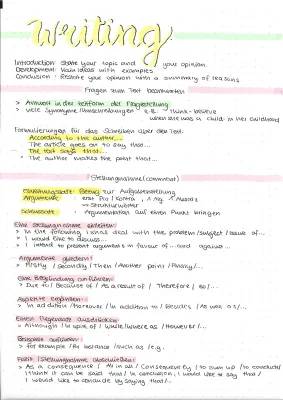 Writing
Introduction: state your topic and your opinion.
Development: Main ideas with examples.
Conclusion: Restate your opinion with a summary of reasons
Fragen zum Text beantworten
> Antwort in der Zeitform der Fragestellung
> viele Synonyme/Umschreibungen z.B. think - believe
when she was a child - in her childhood
Formulierungen für das Schreiben über den Text:
According to the author...
The article goes on to say that...
The text says that...
The author makes the point that...
Stellungnahme (comment)
Einleitungssatz: Bezug zur Aufgabenstellung
Argumente: erst Pro / Kontra, 1 Arg. 1 Absatz
-> Strukturwörter
Schlusssatz: Argumentation auf einen Punkt bringen
Eine Stellungnahme einleiten:
> In the following I shall deal with the problem/subject/issue of...
> I would like to discuss...
> I intend to present arguments in favour of... and against...
Argumente gliedern:
> Firstly / Secondly / Then / Another point / Finally/...
Eine Begründung einführen:
> Due to / Because of / As a result of / Therefore / so/...
Aspekte ergänzen:
> In addition / Moreover / In addition to / Besides / As well as /...
Einen Gegensatz ausdrücken:
> Although / In spite of / While/Whereas / However/...
Beispiele anführen:
> For example / for instance / such as / e.g.
Fazit / Stellungnahme abschließen:
> As a consequence / All in all / Consequently / To sum up / To conclude/
I think it can be said that / In conclusion, I would like to say that /
I would like to conclude by saying that/...